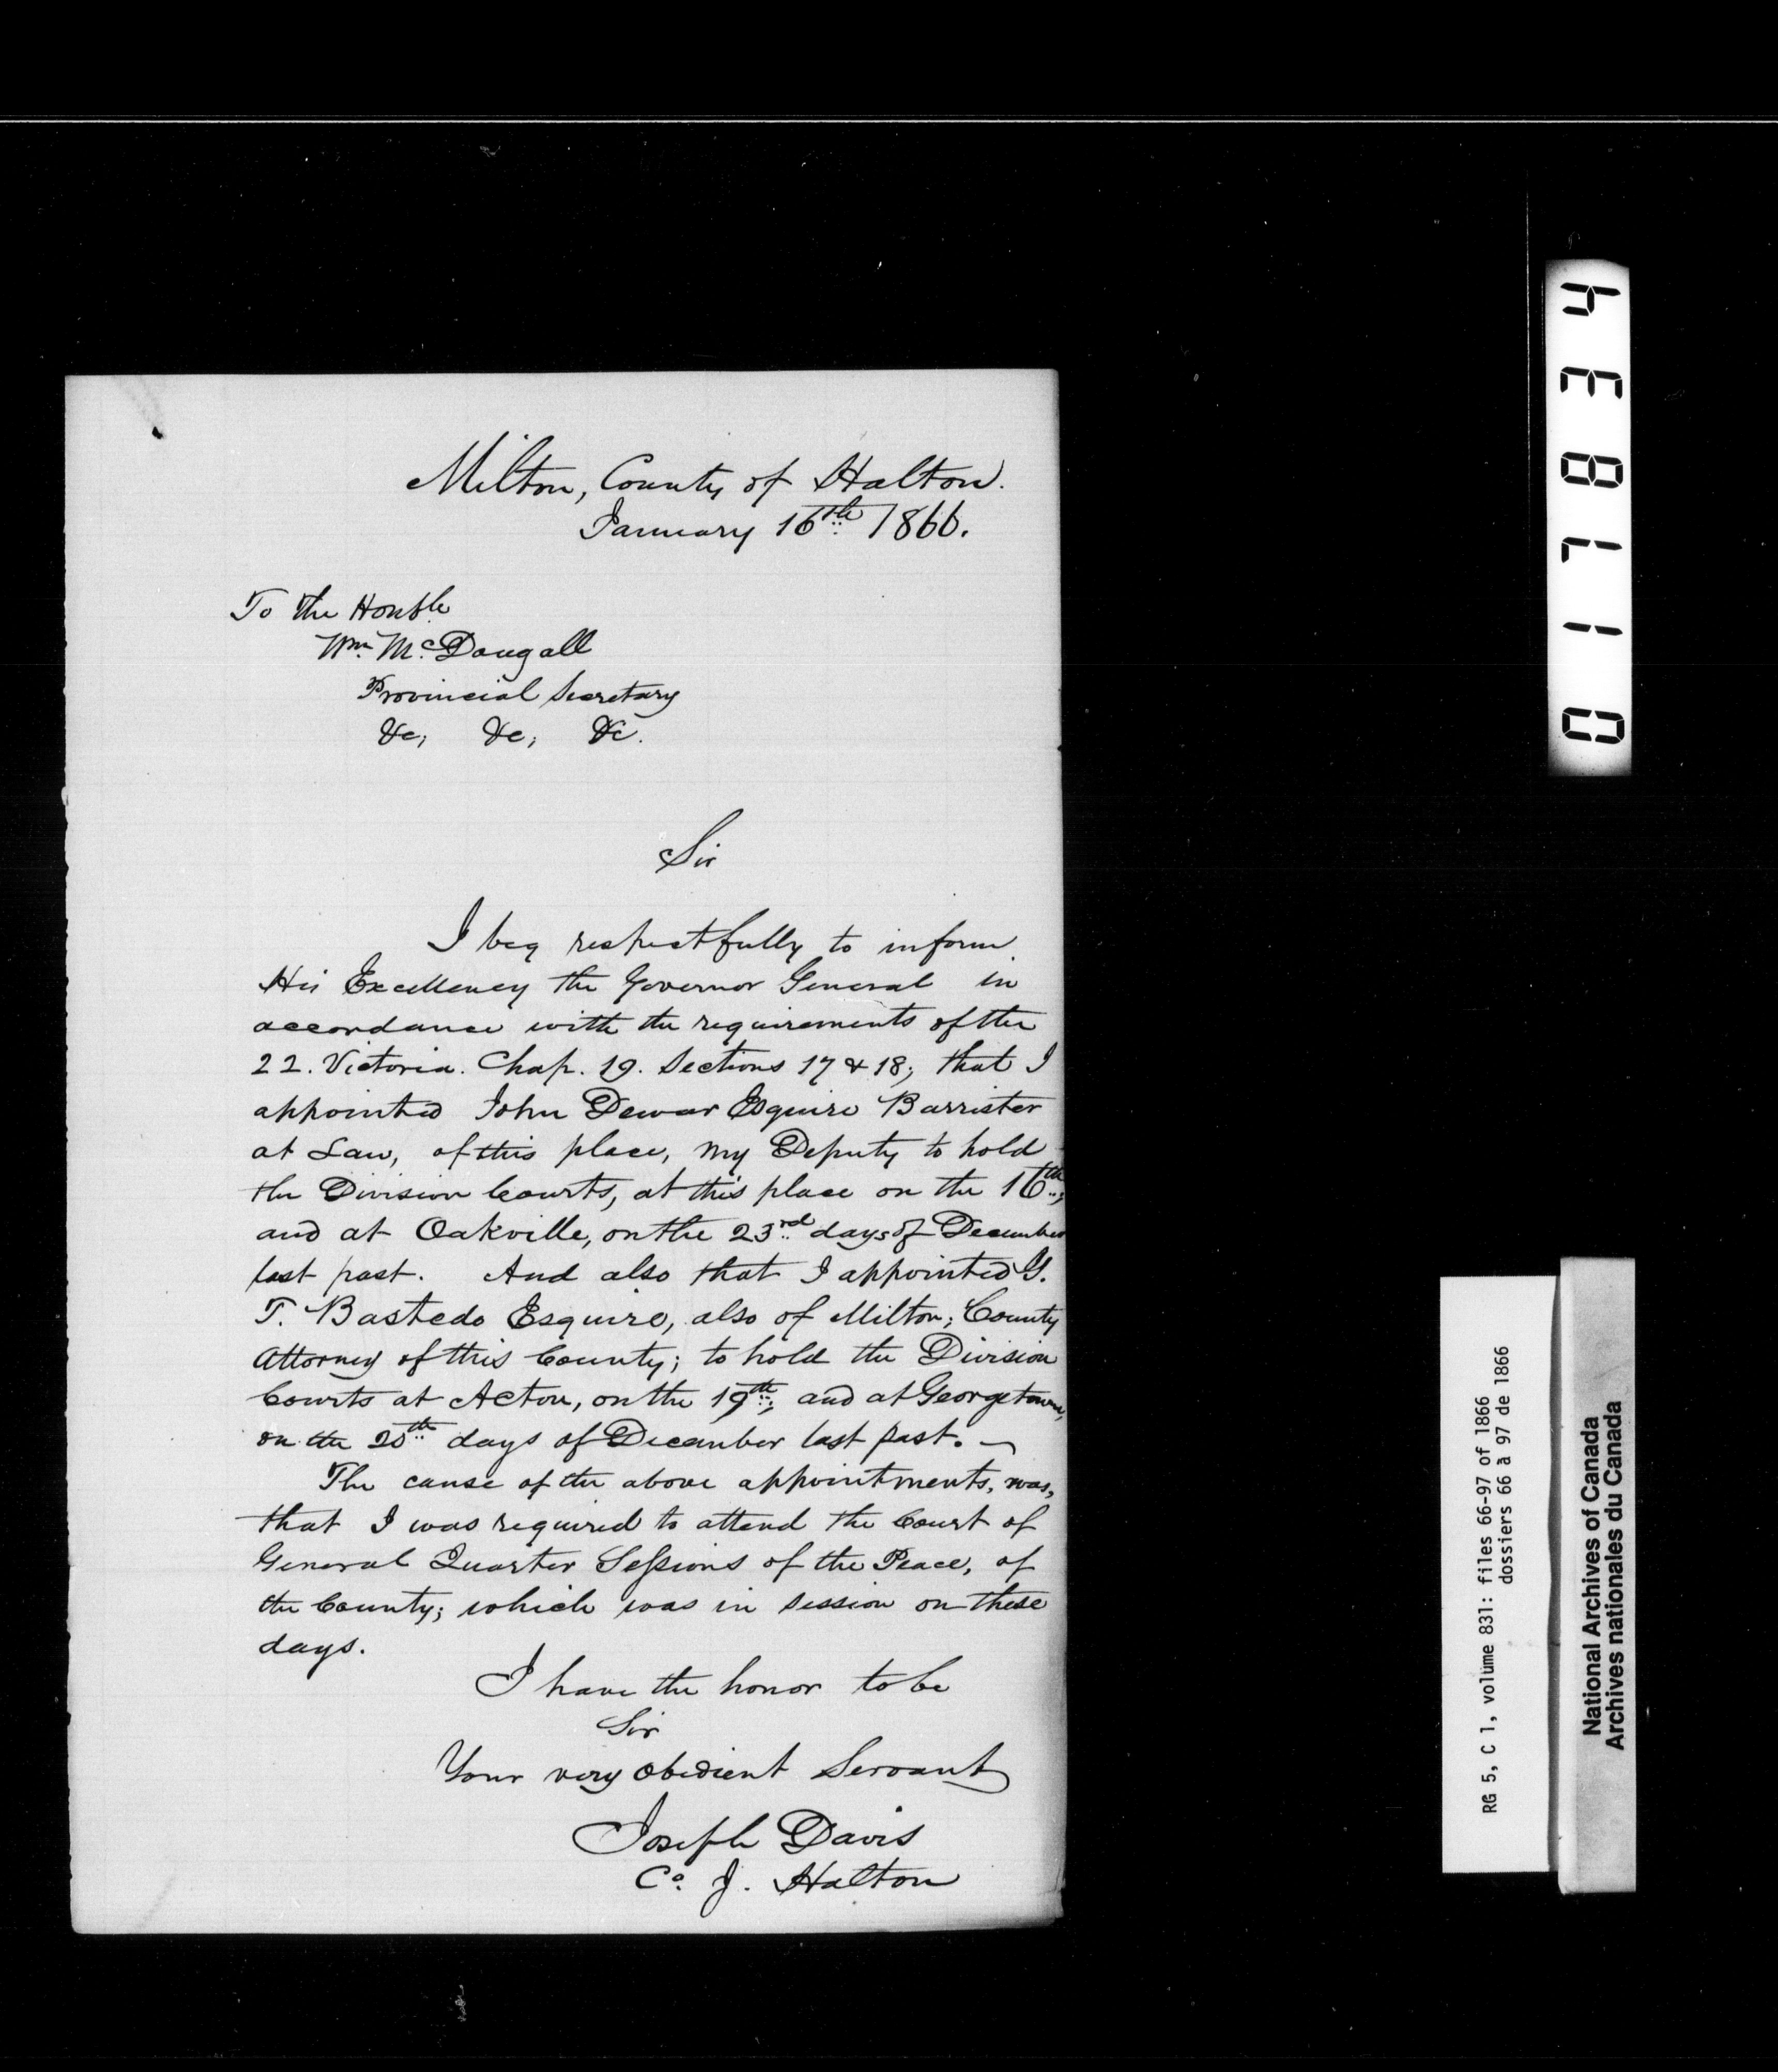 Milton, County of Halton.
January 16th 1866.
To the Honble.
Wm. McDougall
Provincial Secretary
&c, &c, &c.
Sir
I beg respectfully to inform
His Excellency the Governor General in
accordance with the requirements of the
22. Victoria. Chap. 19. Sections 17 & 18; that I
appointed John Dewar Esquire Barrister
at Law, of this place, my Deputy to hold
the Division Courts, at this place on the 16th,
and at Oakville, on the 23rd days of December
last past. And also that I appointed G.
T. Bastedo Esquire, also of Milton; County
Attorney of this County; to hold the Division
Courts at Acton, on the 19th; and at Georgetown,
on the 20th days of December last past. ~
The cause of the above appointments, was,
that I was required to attend the Court of
General Quarter Sessions of the Peace, of
the County; which was in session on these
days.
I have the honor to be
Sir
Your very obedient Servant
Joseph Davis
Co. J. Halton
017834
RG 5, C 1, volume 831: files 66-97 of 1866
dossiers 66 à 97 de 1866
National Archives of Canada
Archives nationales du Canada